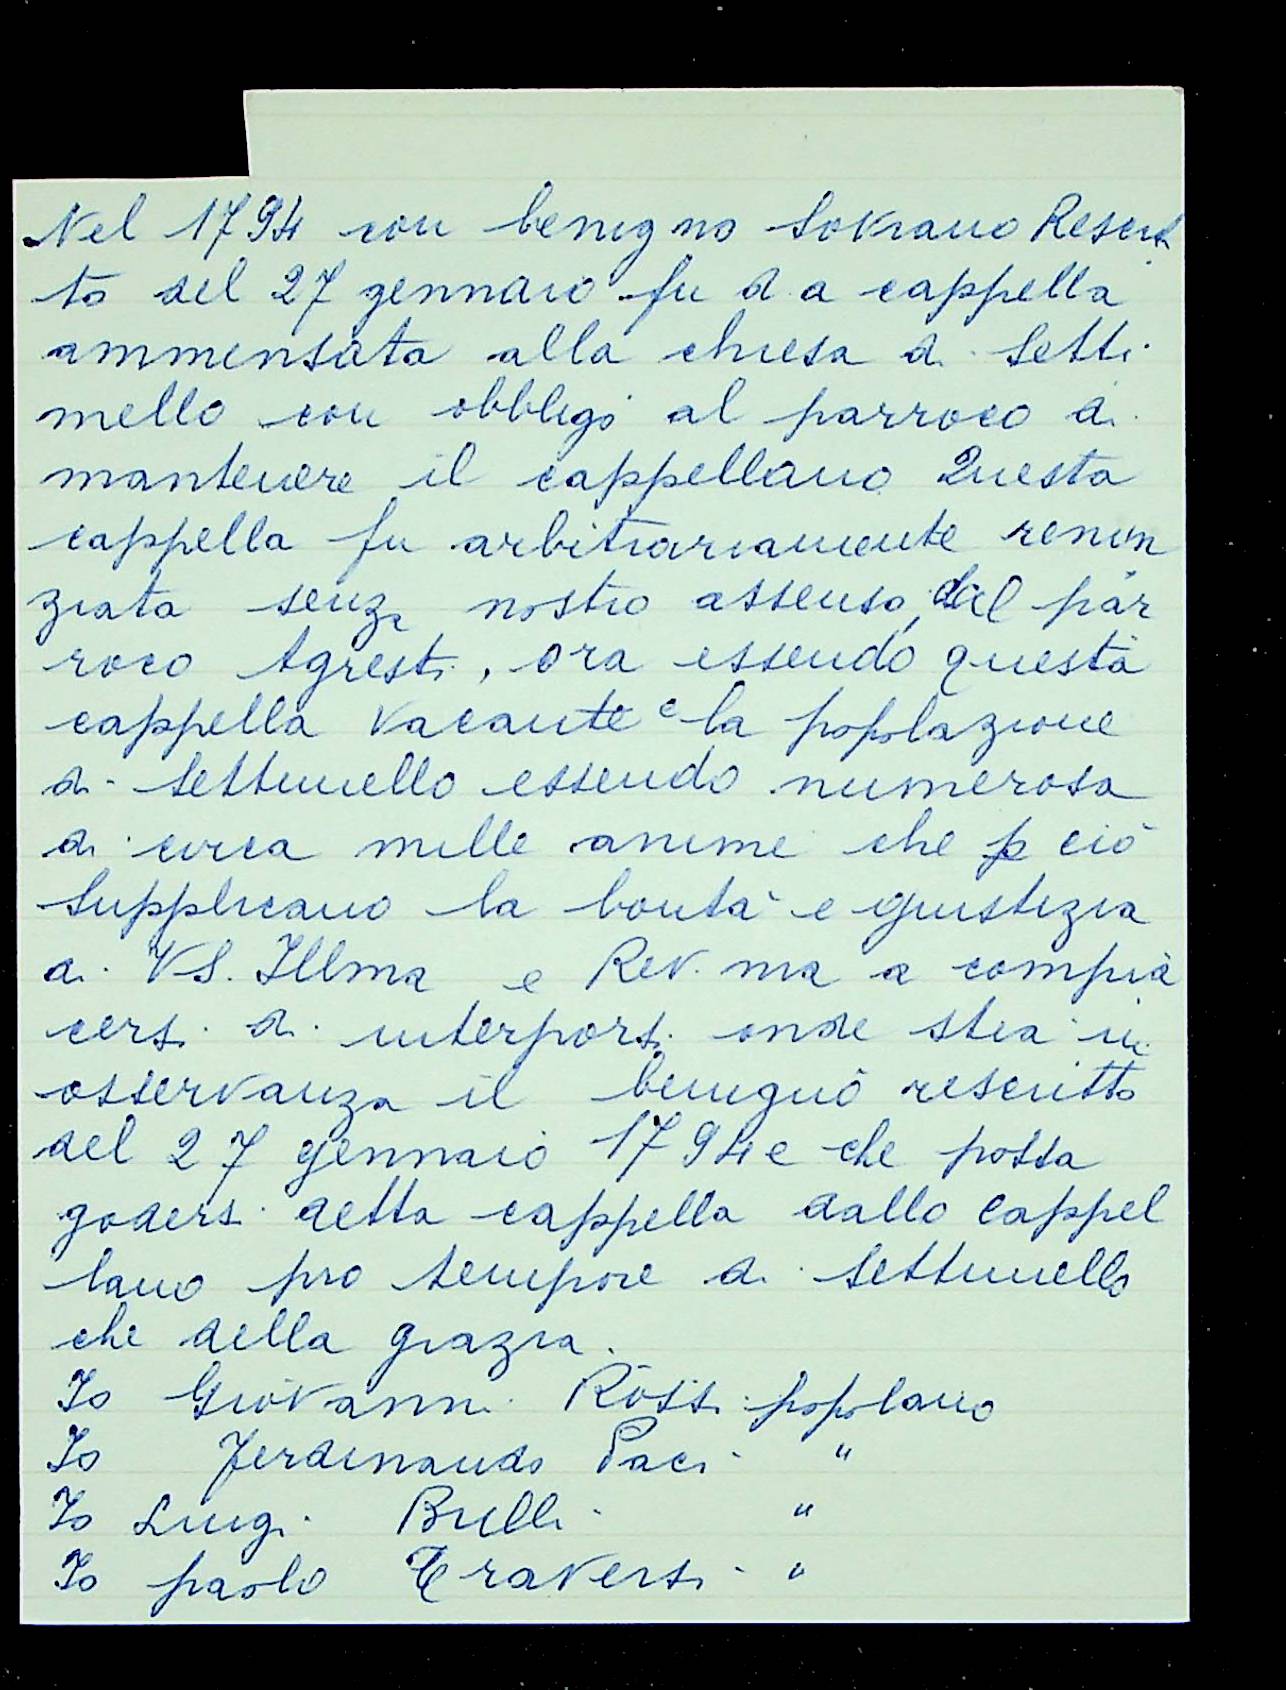 Nel 1794 con benigno Sovrano Rescrit
to del 27 gennaio fu d a cappella
ammensata alla chiesa di Setti
mello con obbligo al parroco di
mantenere il cappellano Questa
cappella fu arbitrariamente renun
ziata senza nostro assenso, dal par
roco Agresti, ora essendo questa
cappella vacante e la popolazione
di Settimello essendo numerosa
di circa mille anime che p ciò
Supplicano la bontà e giustizia
di VS. Illma e Rev.ma a compia
cersi di interporsi onde stia in
osservanza il benigno rescritto
del 27 gennaio 1794 e che possa
godersi detta cappella dallo Cappel
lano pro tempore di Settimello
che della grazia.
Io Giovanni Rossi popolano
Io Ferdinando Paci "
Io Luigi Brilli "
Io paolo Traversi "